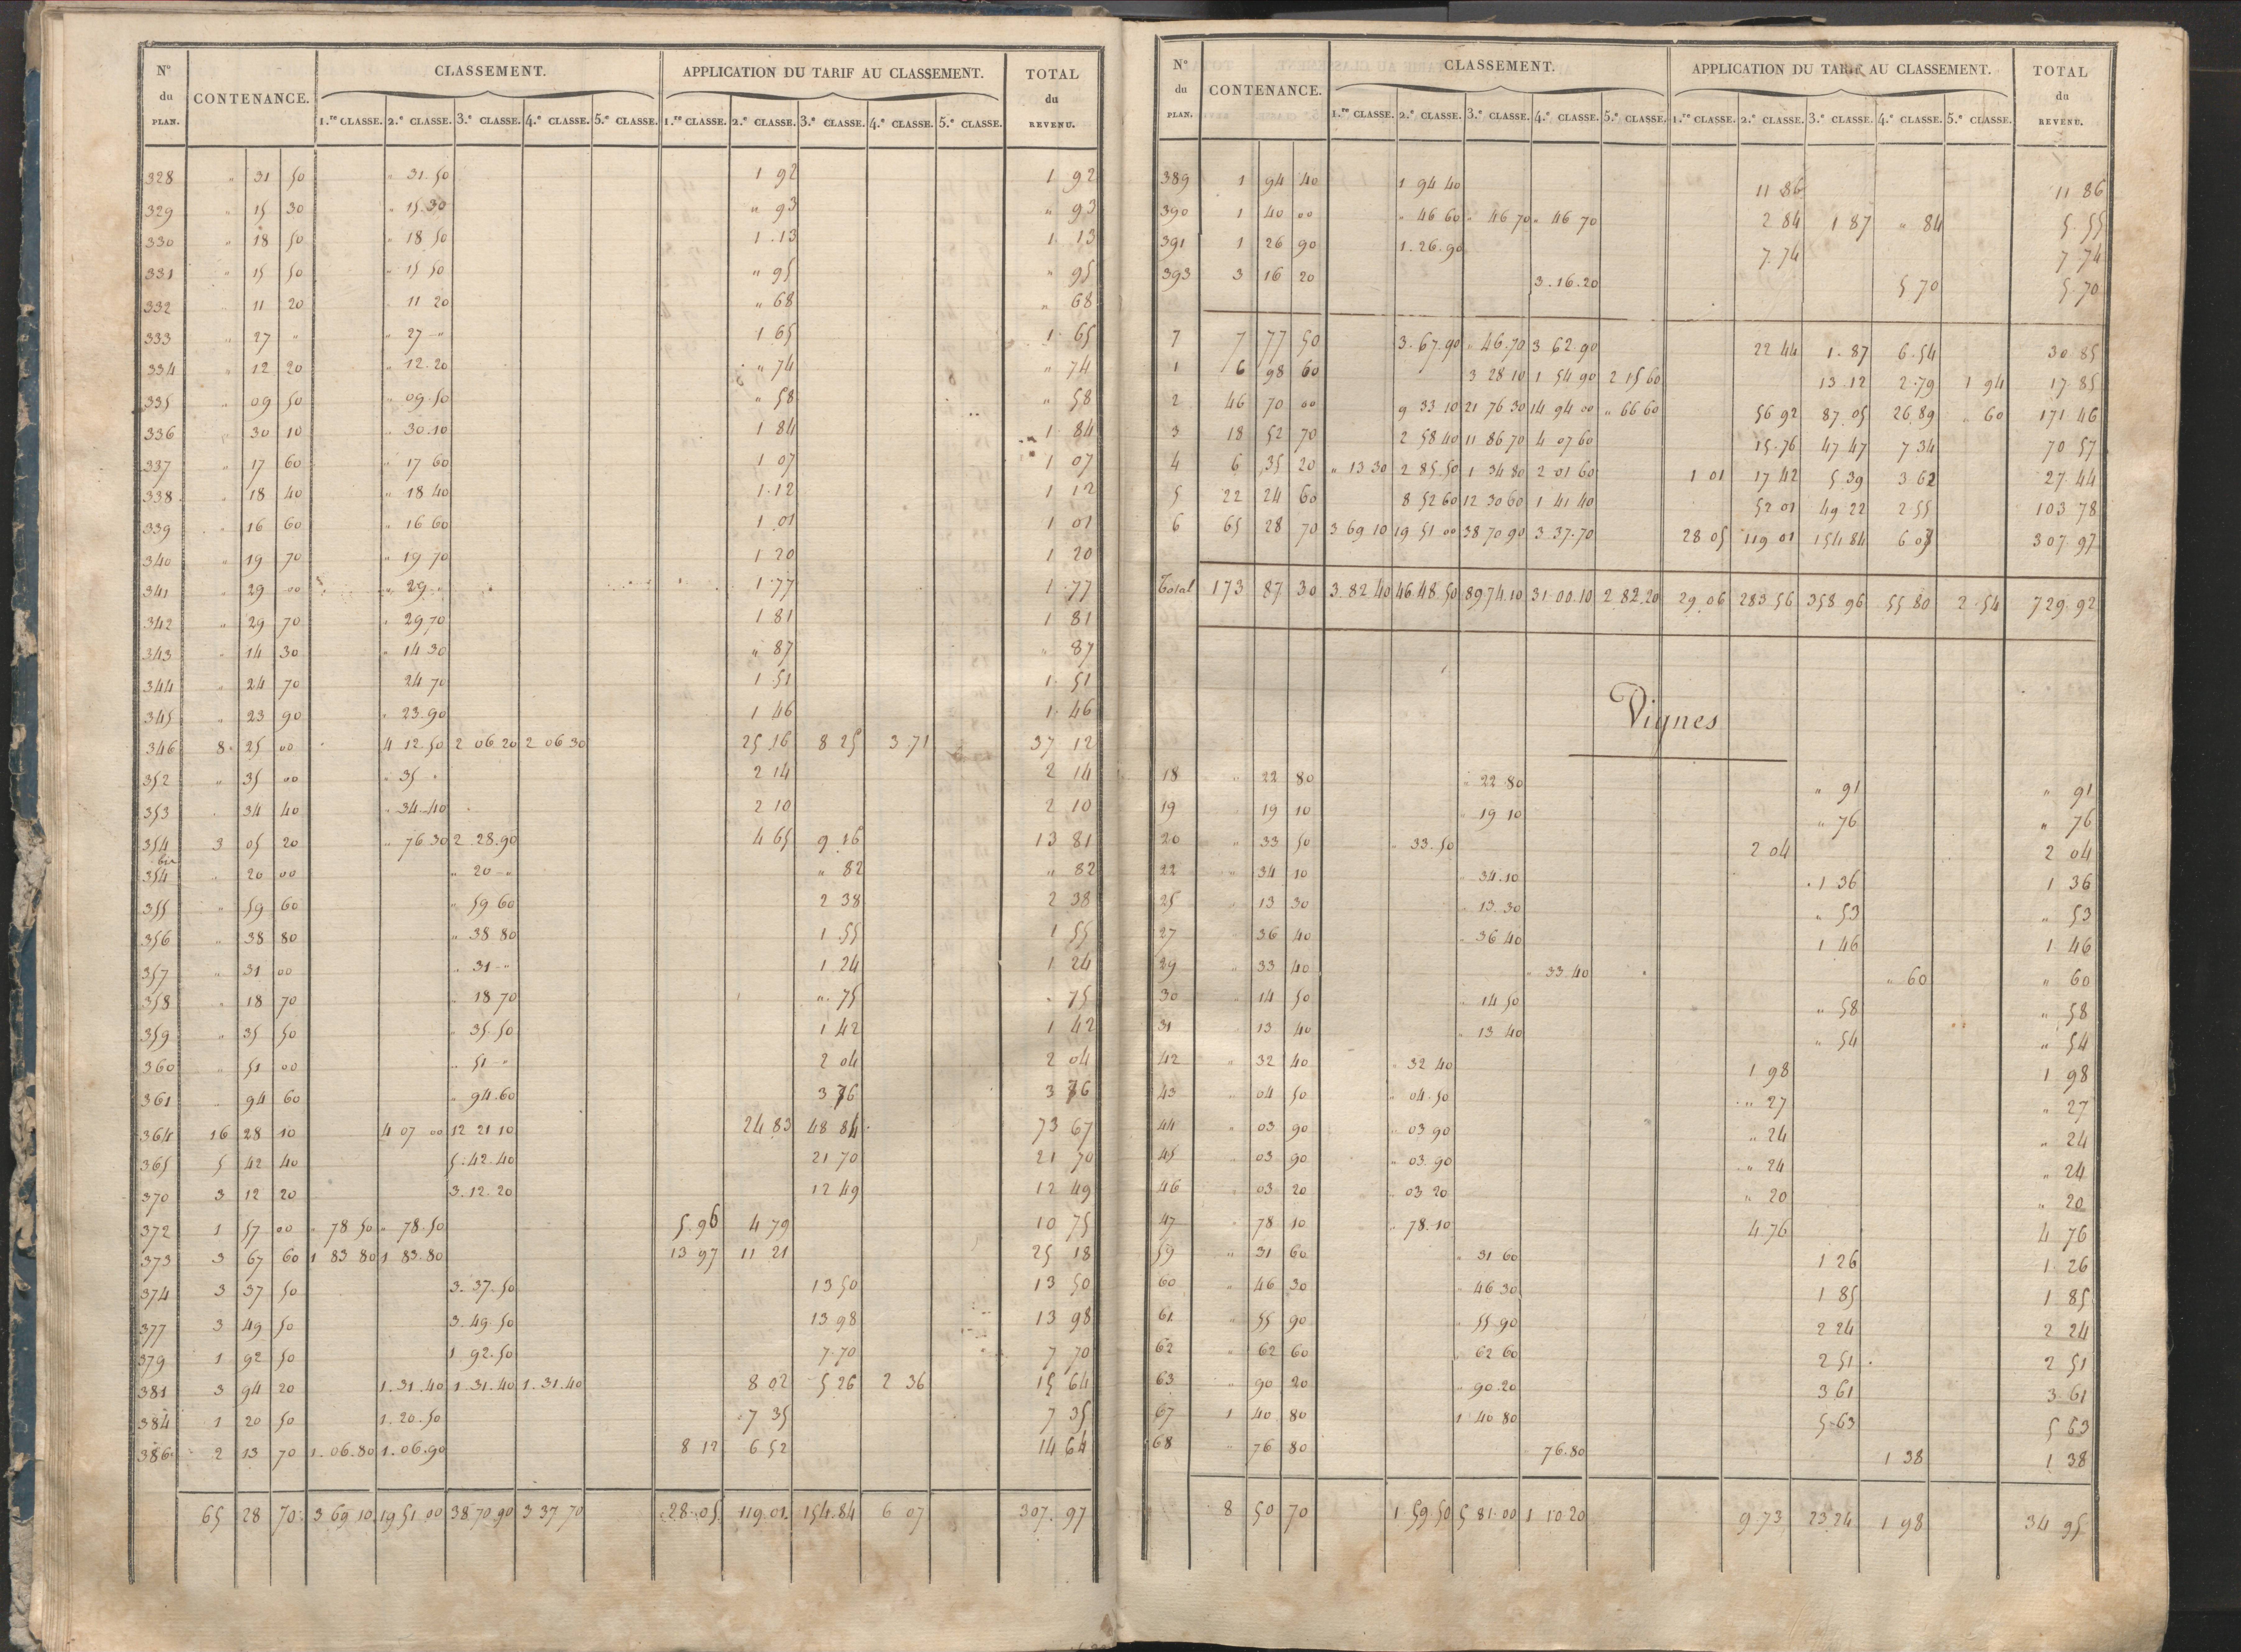 N° du PLAN. CONTENANCE. CLASSEMENT. APPLICATION DU TARIF AU CLASSEMENT. TOTAL du REVENU.
1.re CLASSE. 2.e CLASSE. 3.e CLASSE. 4.e CLASSE. 5.e CLASSE. 1.re CLASSE. 2.e CLASSE. 3.e CLASSE. 4.e CLASSE. 5.e CLASSE.
328 " 31 50 " 31.50 1 92 1 92
329 " 15 30 " 15.30 " 93 " 93
330 " 18 50 " 18 50 1.13 1.13
331 " 15 50 " 15 50 " 95 " 95
332 " 11 20 " 11 20 " 68 " 68
333 " 27 " " 27 " 1 65 1.65
334 " 12 20 " 12.20 " 74 " 74
335 " 09 50 " 09.50 " 58 " 58
336 " 30 10 " 30.10 1 84 1.84
337 " 17 60 " 17 60 1 07 1 07
338 " 18 40 " 18 40 1.12 1 12
339 " 16 60 " 16 60 1 01 1 01
340 " 19 70 " 19 70 1 20 1 20
341 " 29 00 " 29 " 1.77 1.77
342 " 29 70 " 29.70 1 81 1 81
343 " 14 30 " 14 30 " 87 " 87
344 " 24 70 24 70 1 51 1.51
345 " 23 90 " 23.90 1 46 1.46
346 8 25 00 4 12.50 2 06 20 2 06 30 25 16 8 25 3.71 37 12
352 " 35 00 " 35 " 2 14 2 14
353 " 34 40 " 34.40 2 10 2 10
354 3 05 20 " 76 30 2 28.90 4 65 9.16 13 81
354 bis " 20 00 " 20 " " 82 " 82
355 " 59 60 " 59 60 2 38 2 38
356 " 38 80 " 38 80 1.55 1 55
357 " 31 00 " 31 " 1 24 1 24
358 " 18 70 " 18 70 " 75 " 75
359 " 35 50 " 35.50 1 42 1 42
360 " 51 00 " 51 " 2 04 2 04
361 " 94 60 " 94.60 3 76 3 76
364 16 28 10 4 07 00 12 21 10 24 83 48 84 73 67
365 5 42 40 5.42 40 21 70 21 70
370 3 12 20 3.12.20 12 49 12 49
372 1 57 00 " 78 50 " 78.50 5.96 4 79 10 75
373 3 67 60 1 83 80 1 83.80 13 97 11 21 25 18
374 3 37 50 3.37.50 13 50 13 50
377 3 49 50 3.49.50 13 98 13 98
379 1 92 50 1 92.50 7.70 7 70
381 3 94 20 1.31.40 1.31.40 1.31.40 8 02 5 26 2 36 15 64
384 1 20 50 1.20.50 7 35 7 35
386 2 13 70 1.06.80 1.06.90 8 12 6 52 14 64
65 28 70 3 69 10 19 51 00 38 70 90 3 37 70 28.05 119.01 154.84 6 07 307.97
N° du PLAN. CONTENANCE. CLASSEMENT. APPLICATION DU TARIF AU CLASSEMENT. TOTAL du REVENU.
1.re CLASSE. 2.e CLASSE. 3.e CLASSE. 4.e CLASSE. 5.e CLASSE. 1.re CLASSE. 2.e CLASSE. 3.e CLASSE. 4.e CLASSE. 5.e CLASSE.
389 1 94 40 1 94 40 11 86 11 86
390 1 40 00 " 46 60 " 46.70 " 46 70 2 84 1 87 " 84 5.55
391 1 26 90 1.26.90 7.74 7 74
393 3 16 20 3.16.20 5 70 5.70
7 7 77 50 3.67.90 " 46.70 3 62.90 22 44 1.87 6.54 30 85
1 6 98 60 3 28 10 1 54 90 2 15 60 13.12 2.79 1 94 17.85
2 46 70 00 9 33 10 21 76 30 14 94 00 " 66 60 56 92 87.05 26 89 " 60 171 46
3 18 52 70 2 58 40 11 86 70 4 07 60 15.76 47 47 7 34 70 57
4 6 35 20 " 13 30 2 85.50 1 34 80 2 01 60 1 01 17 42 5.39 3 62 27.44
5 22 24 60 8 52 60 12 30 60 1 41 40 52 01 49 22 2.55 103 78
6 65 28 70 3 69 10 19 51 00 38 70 90 3 37.70 28 05 119 01 154 84 6 07 307.97
Total 173 87 30 3.82.40 46.48.50 89.74.10 31.00.10 2 82.20 29.06 283.56 358.96 55.80 2.54 729.92
Vignes
18 " 22 80 " 22 80 " 91 " 91
19 19 10 " 19 10 " 76 " 76
20 " 33 50 " 33.50 2 04 2 04
22 " 34 10 " 34.10 1 36 1 36
25 " 13 30 " 13.30 " 53 " 53
27 " 36 40 " 36 40 1 46 1 46
29 " 33 40 " 33.40 " 60 " 60
30 " 14 50 " 14 50 " 58 " 58
31 13 40 " 13 40 " 54 " 54
42 " 32 40 " 32 40 1 98 1 98
43 " 04 50 " 04.50 " 27 " 27
44 " 03 90 " 03 90 " 24 " 24
45 " 03 90 " 03 90 " 24 " 24
46 " 03 20 " 03 20 " 20 " 20
47 " 78 10 " 78.10 4.76 4 76
59 " 31 60 " 31 60 1 26 1.26
60 " 46 30 " 46 30 1 85 1 85
61 " 55 90 " 55 90 2 24 2 24
62 " 62 60 " 62 60 2 51 2 51
63 " 90 20 " 90.20 3 61 3.61
67 1 40 80 1 40 80 5.63 5 63
68 " 76 80 " 76.80 1 38 1 38
8 50 70 1 59.50 5 81.00 1 10 20 9 73 23 24 1 98 34 95